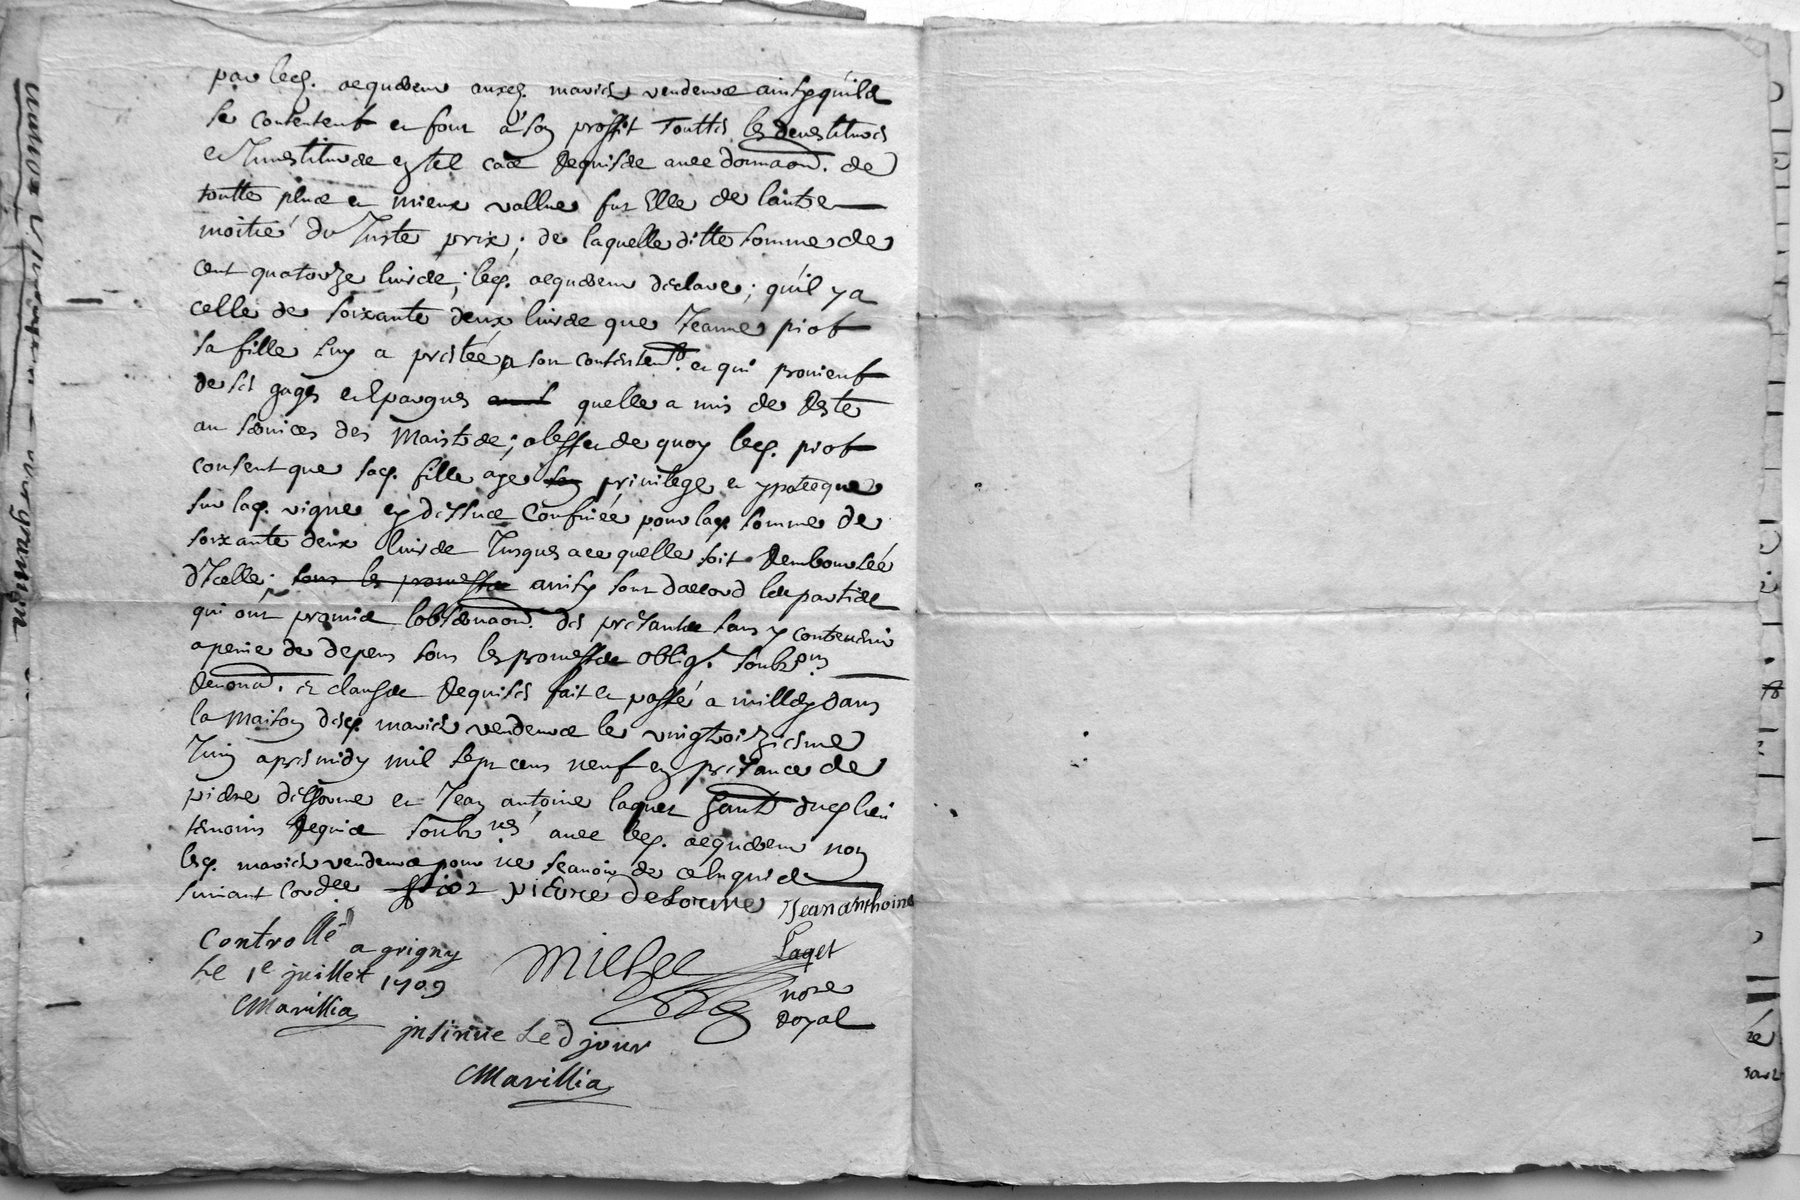 par led. acquereur auxd. mariés vendeurs ainsy quils
se contentent et font a son proffit touttes les devestitures
et Investitures en tel cas requises avec donnaon. de
toutte plus et mieux vallue fut Elle de lautre
moitié du Juste prix; de laquelle ditte somme de
cent quatorze livres; led. acquereur declare; quil y a
celle de soixante deux livres que Jeanne piot
sa fille luy a prestée a son contentemt. et qui provient
de ses gages et Epargnes quelle a mis de reste
au services des Maistres; a leffet de quoy led. piot
consent que sad. fille aye privilege et ypoteque
sur lad. vigne cy dessus Confinée pour lad. somme de
soixante deux livres Jusques a ce quelle soit Remboursée
dIcelle; sous les promesses ainsy sont daccord les parties
qui ont promis lobservaon. des presantes sans y contrevenir
a peine de depens sous les promesses oblig. soubz.ons
Renond. et clauses Requises fait et passé a millery dans
la Maison desd. mariés vendeurs le vingtroizieme
Juin apres midy mil sept cens neuf en presance de
pierre delorme et Jean antoine laquet dud. lieu
temoins Requis soubz.nés avec led. acquereur non
lesd. mariés vendeurs pour ne scavoir de ce Enquis
suivant Lord.ce piot pierre delorme Jean anthoine
Laqet
Controllé a grigny
Le 1e juillet 1709
Marillia
Michel
nore
Royal
insinué Led jour
Marillia